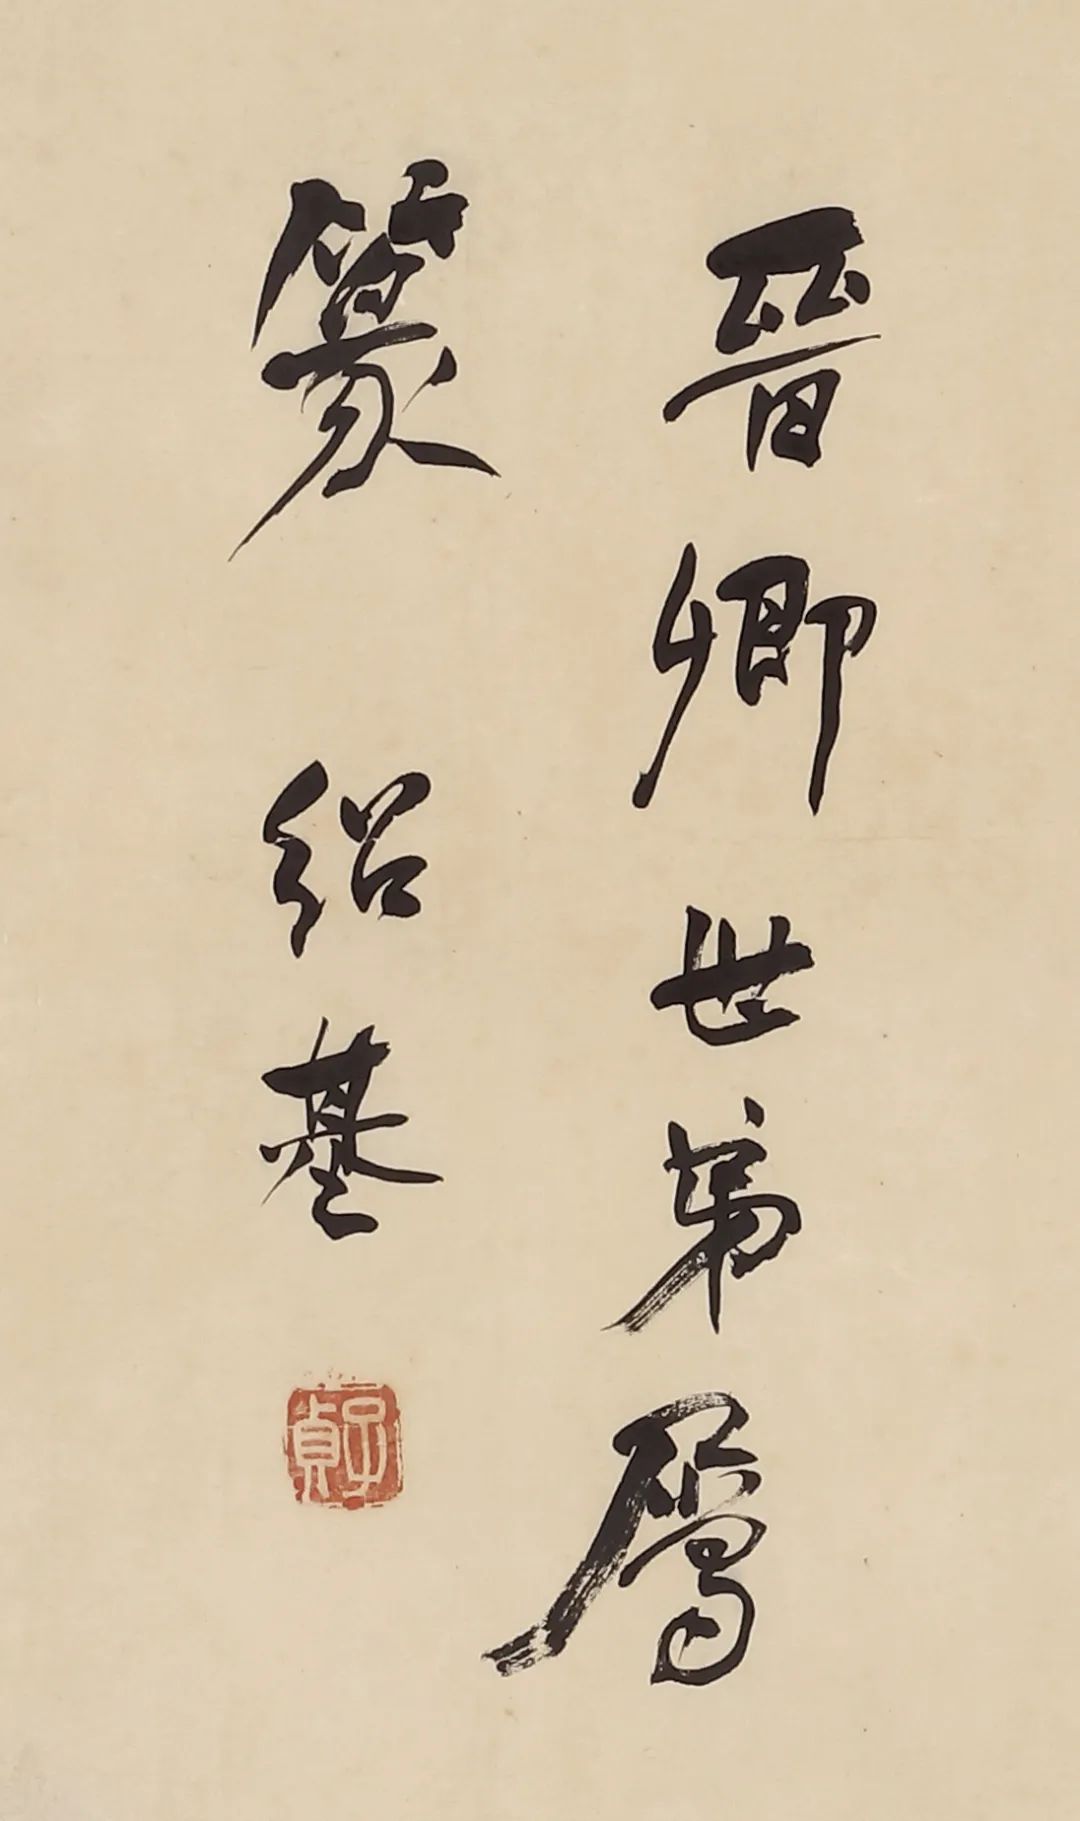 晉卿世弟屬
篆 紹基
子貞